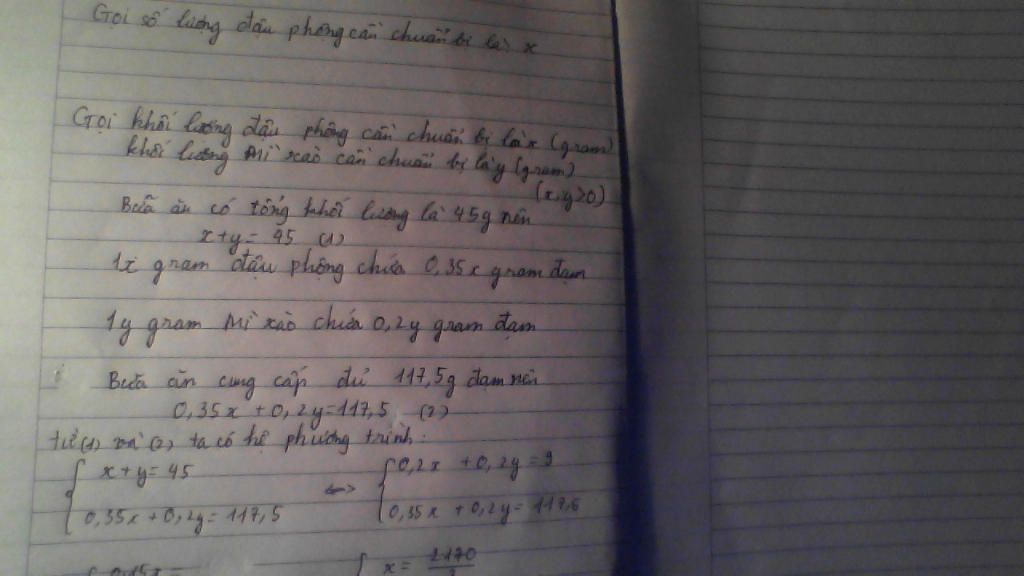 Gọi số lượng đậu phộng cần chuẩn bị là x
Gọi khối lượng đậu phộng cần chuẩn bị là x (gram)
khối lượng Mì xào cần chuẩn bị là y (gram)
(x,y>0)
Bữa ăn có tổng khối lượng là 45g nên
x+y= 45 (1)
1x gram đậu phộng chứa 0,35x gram đạm
1y gram Mì xào chứa 0,2y gram đạm
Bữa ăn cung cấp đủ 117,5g đạm nên
0,35x + 0,2y=117,5 (2)
Từ (1) và (2) ta có hệ phương trình:
x+y=45 <=> 0,2x + 0,2y=9
0,35x+0,2y=117,5 0,35x + 0,2y=117,5
0,15x= x =